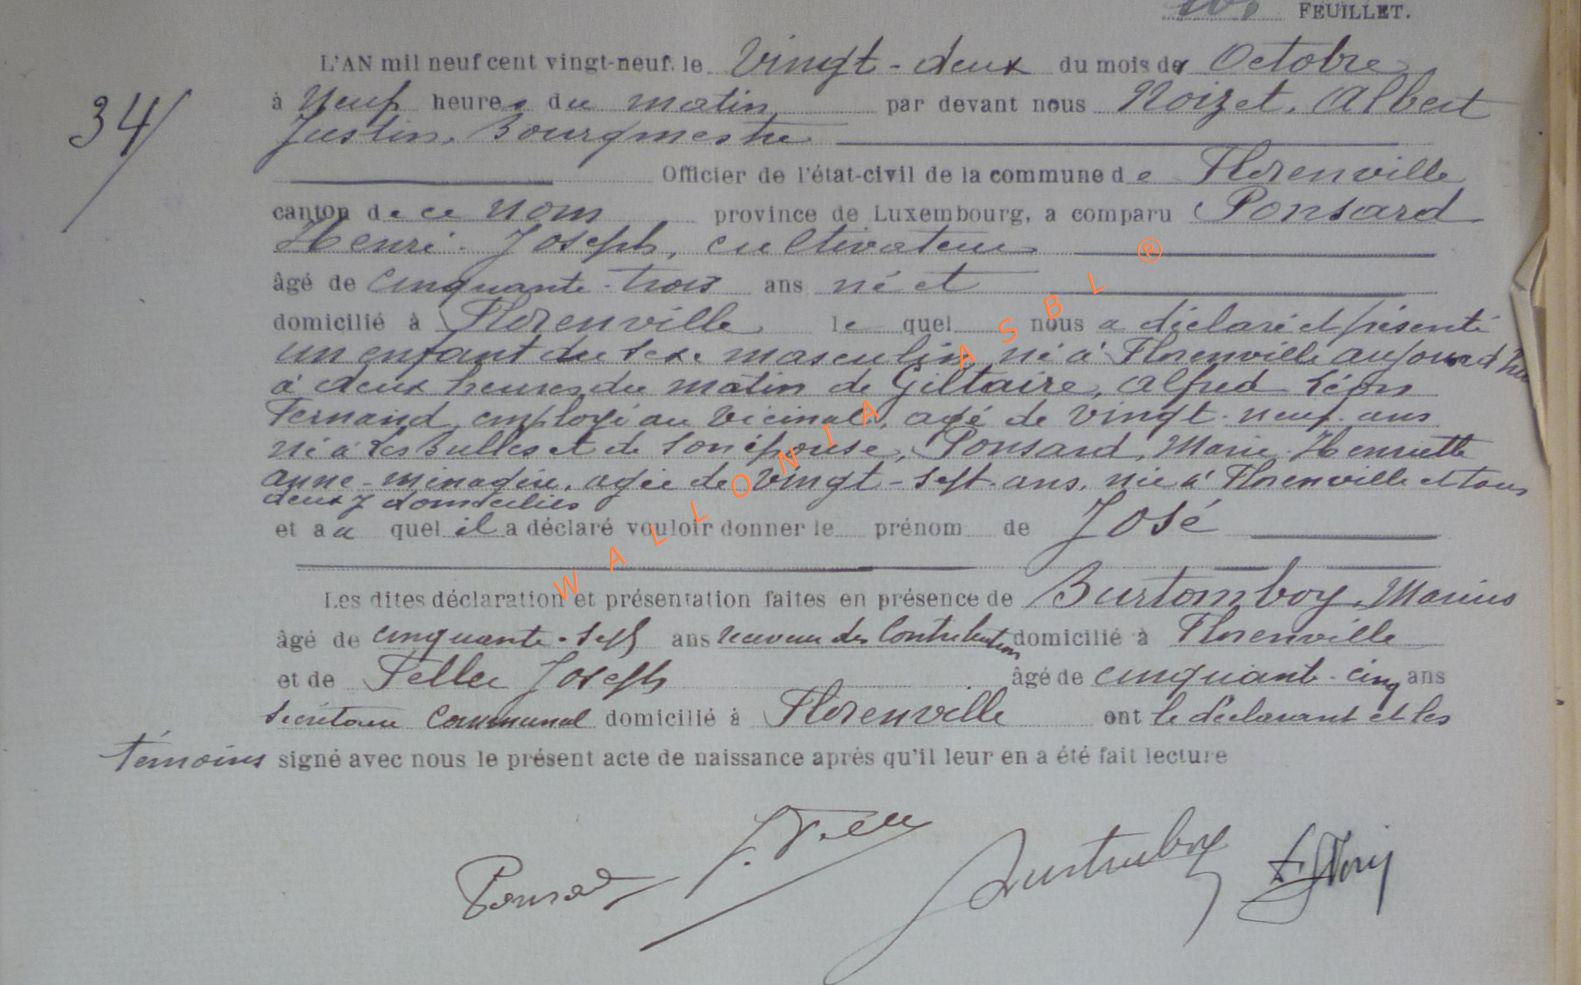 FEUILLET.
L'AN mil neuf cent vingt-neuf, le Vingt-deux du mois de Octobre
34/
à Neuf heures du matin par devant nous Noizet, Albert
Justin, Bourgmestre
Officier de l'état-civil de la commune de Florenville
canton de ce nom province de Luxembourg, a comparu Ponsard
Henri-Joseph, cultivateur
âgé de cinquante-trois ans né et
domicilié à Florenville le quel nous a déclaré et présenté
un enfant du sexe masculin, né à Florenville aujourd'hui
à deux heures du matin de Giltaire, Alfred Léon
Fernand, employé au Vicinal, agé de vingt-neuf ans
né à Les Bulles et de son épouse, Ponsard, Marie Henriette
Anne-ménagère, agée de Vingt-sept-ans, née à Florenville et tous
deux y domiciliés
et a a quel il a déclaré vouloir donner le prénom de José
Les dites déclaration et présentation faites en présence de Burtomboy, Marius
âgé de cinquante-sept ans receveur des Contribution domicilié à Florenville
et de Feller Joseph âgé de cinquante-cinq ans
secrétaire communal domicilié à Florenville ont le déclarant et les
témoins signé avec nous le présent acte de naissance après qu'il leur en a été fait lecture
Ponsard
WALLONIA ASBL ®